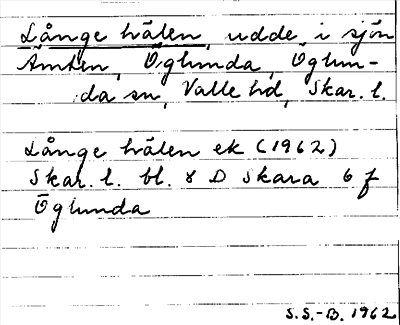 Långe hälen, udde i sjön
Ämten, Öglunda, Öglun-
da sn, Valle hd, Skar. l.
Långe hälen ek (1962)
Skar. l. bl. 8 D Skara 6 f
Öglunda
S.S.-B. 1962